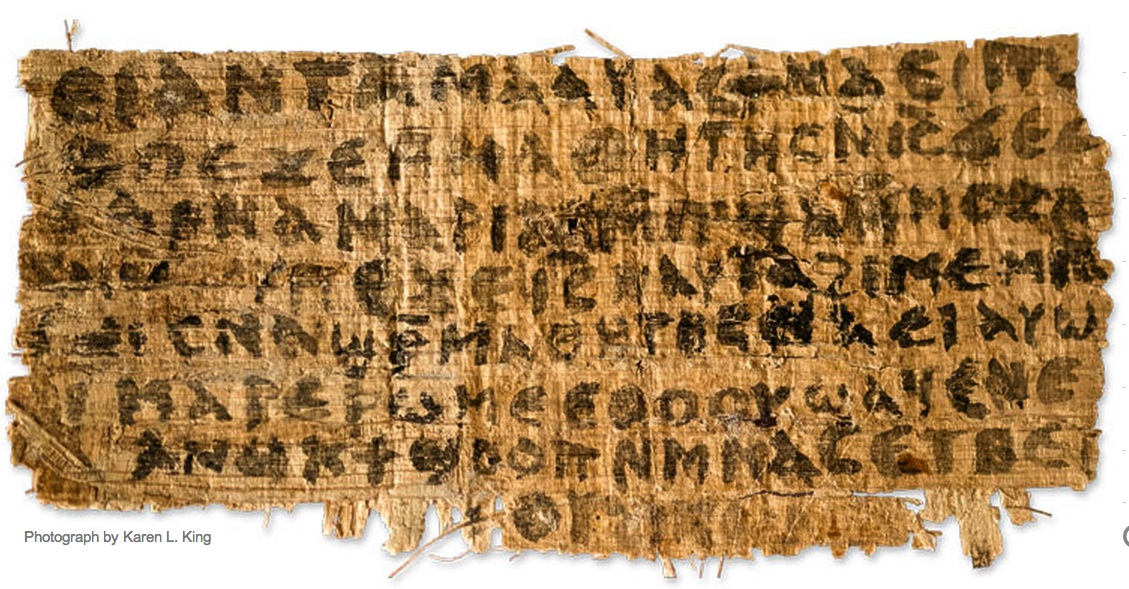 ⲉⲓ ⲁⲛ ⲧⲁⲙⲁⲁⲩ ⲁⲥϯ ⲛⲁⲉⲓ ⲡ
ⲥ ⲡⲉϫⲉ ⲙⲙⲁⲑⲏⲧⲏⲥ ⲛⲓ̅ⲥ̅ ϫⲉ ⲥ
ⲁⲣⲛⲁ ⲙⲁⲣⲓⲁⲙ
ⲡⲉϫⲉ ⲓ̅ⲥ̅ ⲛⲁⲩ ⲧⲁϩⲓⲙⲉ ⲙⲛ
ⲥⲛⲁϣⲣⲙⲁⲑⲏⲧⲏⲥ ⲛⲁⲉⲓ ⲁⲩⲱ
ⲓ ⲙⲁⲣⲉⲣⲱⲙⲉ ⲉⲑⲟⲟⲩ ϣⲁϥⲉ ⲛⲉ
ⲁⲛⲟⲕ ϯϣⲟⲟⲡ ⲛⲙⲙⲁⲥ ⲉⲧⲃⲉ
Photograph by Karen L. King